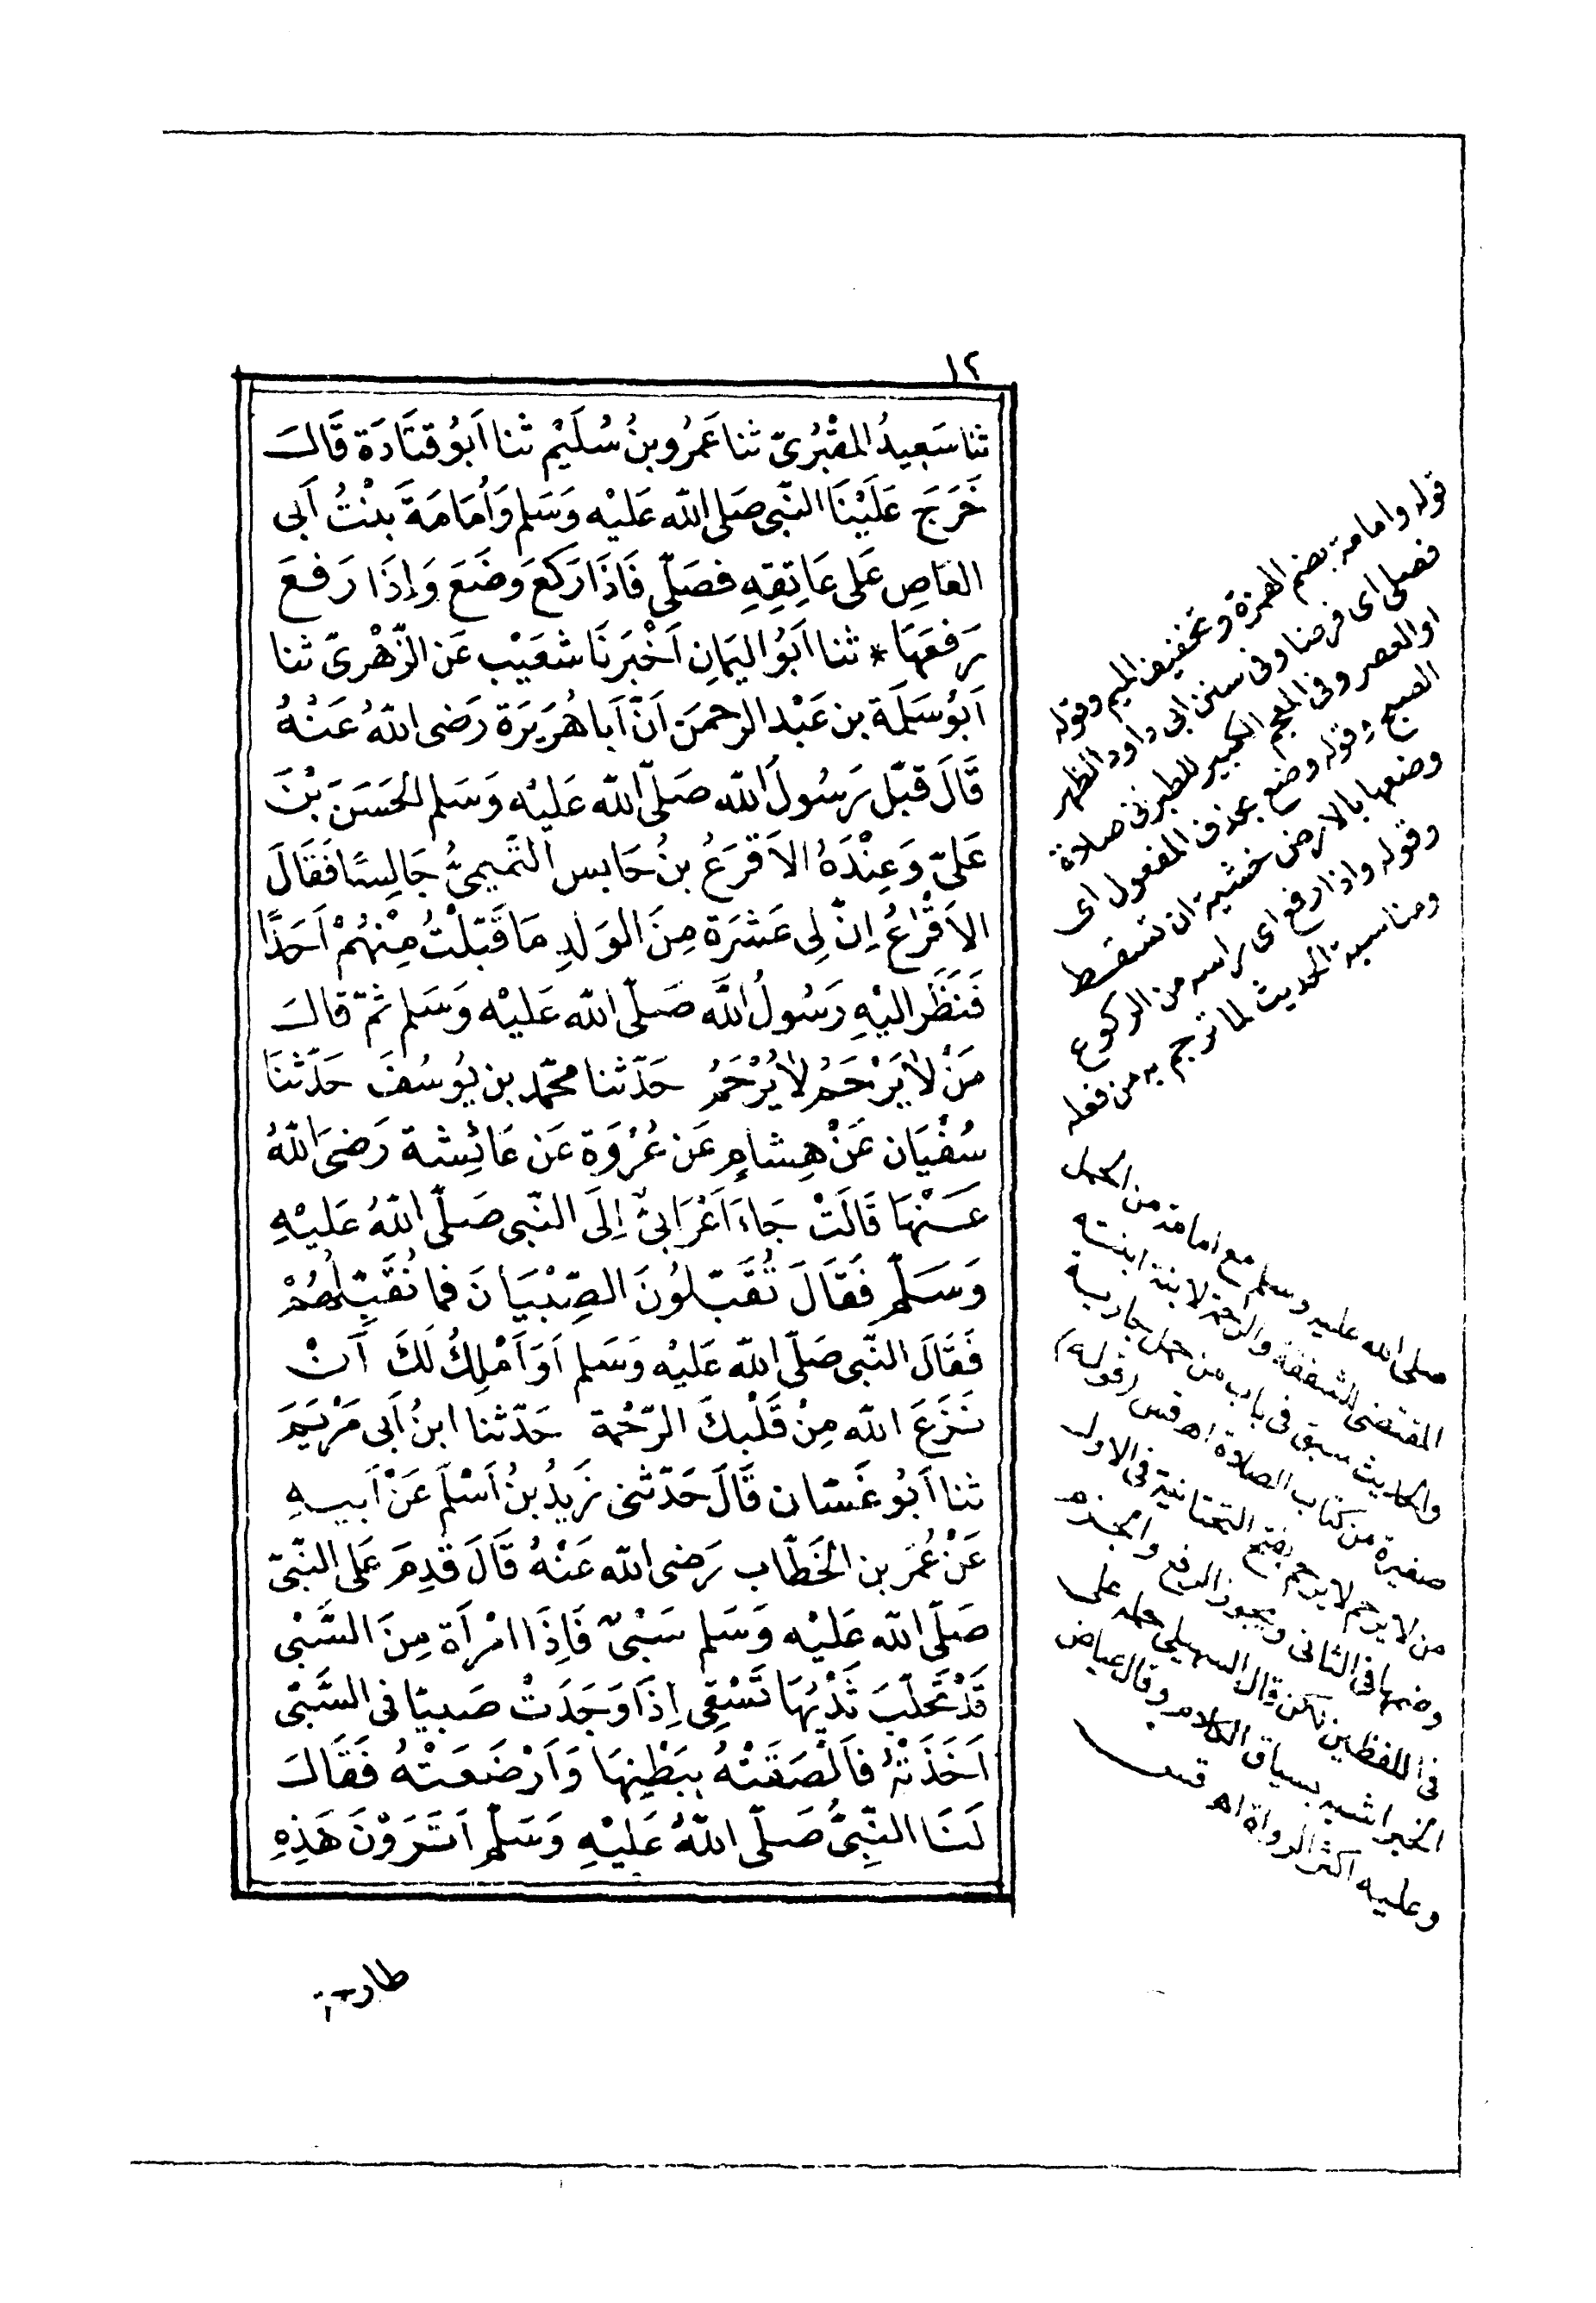 ١٢
ثنا سَعِيدُ المقْبُرىّ ثنا عَمرُو بنُ سُلَيْم ثنا اَبُو قتَادَة قَالَ
خَرَجَ عَلَيْنَا النّبى صَلى الله عَليْه وَسَلم وَاُمَامَةَ بنْتُ اَبى
العَاصِ عَلى عَاتِقِهِ فصَلّى فَاذَا رَكعَ وضَعَ وَإِذَا رَفعَ
رَفعَهَا * ثنا اَبُو اليَمَانِ اَخْبَرَنَا شعَيْب عَن الزّهْرىّ ثنا
اَبُو سَلمَة بن عَبْد الرحمَن اَنّ اَبا هُرَيرَة رَضى اللهُ عَنْهُ
قَالَ قبّل رَسُولُ الله صَلّى الله عَليْه وَسَلم الحَسَنَ بْنَ
عَلىّ وَعِنْدَهُ الاَقرَعُ بنُ حَابس التّميمىُّ جَالِسًا فَقَالَ
الاَقْرَعُ اِنّ لِى عَشَرَة مِنَ الوَلدِ مَا قَبّلْتُ مِنْهُمْ اَحَدًا
فَنَظَر اليْهِ رَسُولُ اللَّه صَلّى الله عَليْه وَسَلم ثمّ قالَ
مَنْ لاَ يَرْحَمُ لاَ يُرْحَمُ حَدّثنا محمّد بن يُوسُفَ حَدّثنَا
سُفْيَان عَنْ هِشامٍ عَن عُرْوَة عَن عَائِشة رَضىَ اللهُ
عَنْهَا قَالَتْ جَاءَ اَعْرَابىٌّ اِلَى النّبى صَلّى اللهُ عَليْهِ
وَسَلّم فَقَالَ تُقَبّلُونَ الصِّبْيَانَ فما نُقَبّلُهُمْ
فَقَالَ النّبى صَلّى الله عَليْه وَسَلم اَوَ اَمْلِكُ لَكَ اَنْ
نَزَعَ الله مِنْ قَلْبكَ الرّحْمة حَدّثنا ابنُ اَبى مَرْيَمَ
ثنا اَبُو غَسّان قَالَ حَدّثنى زَيدُ بنُ اَسْلمَ عَنْ اَبيهِ
عَنْ عُمَرَ بن الخَطّاب رَضى الله عَنْهُ قَالَ قدِمَ عَلى النّبىّ
صَلّى الله عَليْه وَسَلم سَبْىٌ فَاِذَا امْرأة مِنَ السَّبْى
قَدْ تَحَلّبَ ثَدْيُهَا تَسْقِى اِذَا وَجَدَتْ صَبيّا فى السَّبْى
اَخَذَتْهُ فاَلْصَقَتْهُ بِبَطْنِهَا وَاَرْضَعَتْهُ فَقَالَ
لَنَا النّبِىُّ صَلّى اللهُ عَليْهِ وَسَلّم اَتَرَوْنَ هَذِهِ
قوله وامامة بضم الهمزة وتخفيف الميم وقوله
فصلى اى فرضا وفى سنن ابى داود الظهر
او العصر وفى المعجم الكبير للطبرنى صلاة
الصبح وقوله وضع بحذف المفعول اى
وضعها بالارض خشية ان تسقط
وقوله واذا رفع اى راسه من الركوع
ومناسبة الحديث لما ترجم به من فعله
صلى الله عليه وسلم مع امامة من الحمل
المقتضى الشفقة والرحمة لابنة ابنته
والحديث سبق فى باب من حمل جارية
صغيرة من كتاب الصلاة اه قس (قوله)
من لا يرحم لا يرحم بفتح التحتانية فى الاول
وضمها فى الثانى ويجوز الرفع والجزم
فى اللفظين لكن قال السهيلى حمله على
الخبر اشبه بسياق الكلام وقال عياض
وعليه اكثر الرواة اه قس
طارحة